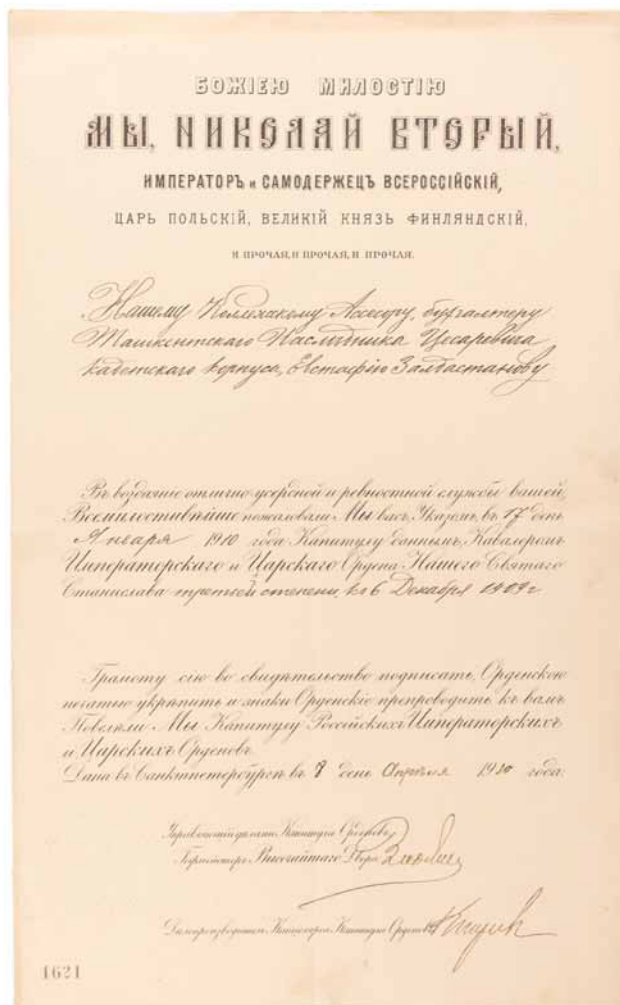 БОЖІЕЮ МИЛОСТІЮ
МЫ, НИКОЛАЙ ВТОРЫЙ,
ИМПЕРАТОРЪ и САМОДЕРЖЕЦЪ ВСЕРОССІЙСКІЙ,
ЦАРЬ ПОЛЬСКІЙ, ВЕЛИКІЙ КНЯЗЬ ФИНЛЯНДСКІЙ,
И ПРОЧАЯ, И ПРОЧАЯ, И ПРОЧАЯ.
Нашему Коллежскому Асесору, бухгалтеру
Ташкентскаго Наслѣдника Цесаревича
кадетскаго корпуса, Евстафію Залдастанову
Въ воздаяніе отлично-усердной и ревностной службы вашей,
Всемилостивѣйше пожаловали Мы васъ, Указомъ, въ 17 день
Января 1910 года Капитулу даннымъ, Кавалеромъ
Императорскаго и Царскаго Ордена Нашего Святаго
Станислава третьей степени, къ 6 Декабря 1909 г.
Грамоту сію во свидѣтельство подписать, Орденскою
печатью укрѣпить и знаки Орденскіе препроводить къ вамъ
Повелѣли Мы Капитулу Россійскихъ Императорскихъ
и Царскихъ Орденовъ.
Дана въ Санктпетербургѣ въ 8 день Апрѣля 1910 года.
Управляющій дѣлами Капитула Орденовъ,
Гофмейстеръ Высочайшаго Двора
Дѣлопроизводитель Канцеляріи Капитула Орденовъ
1621